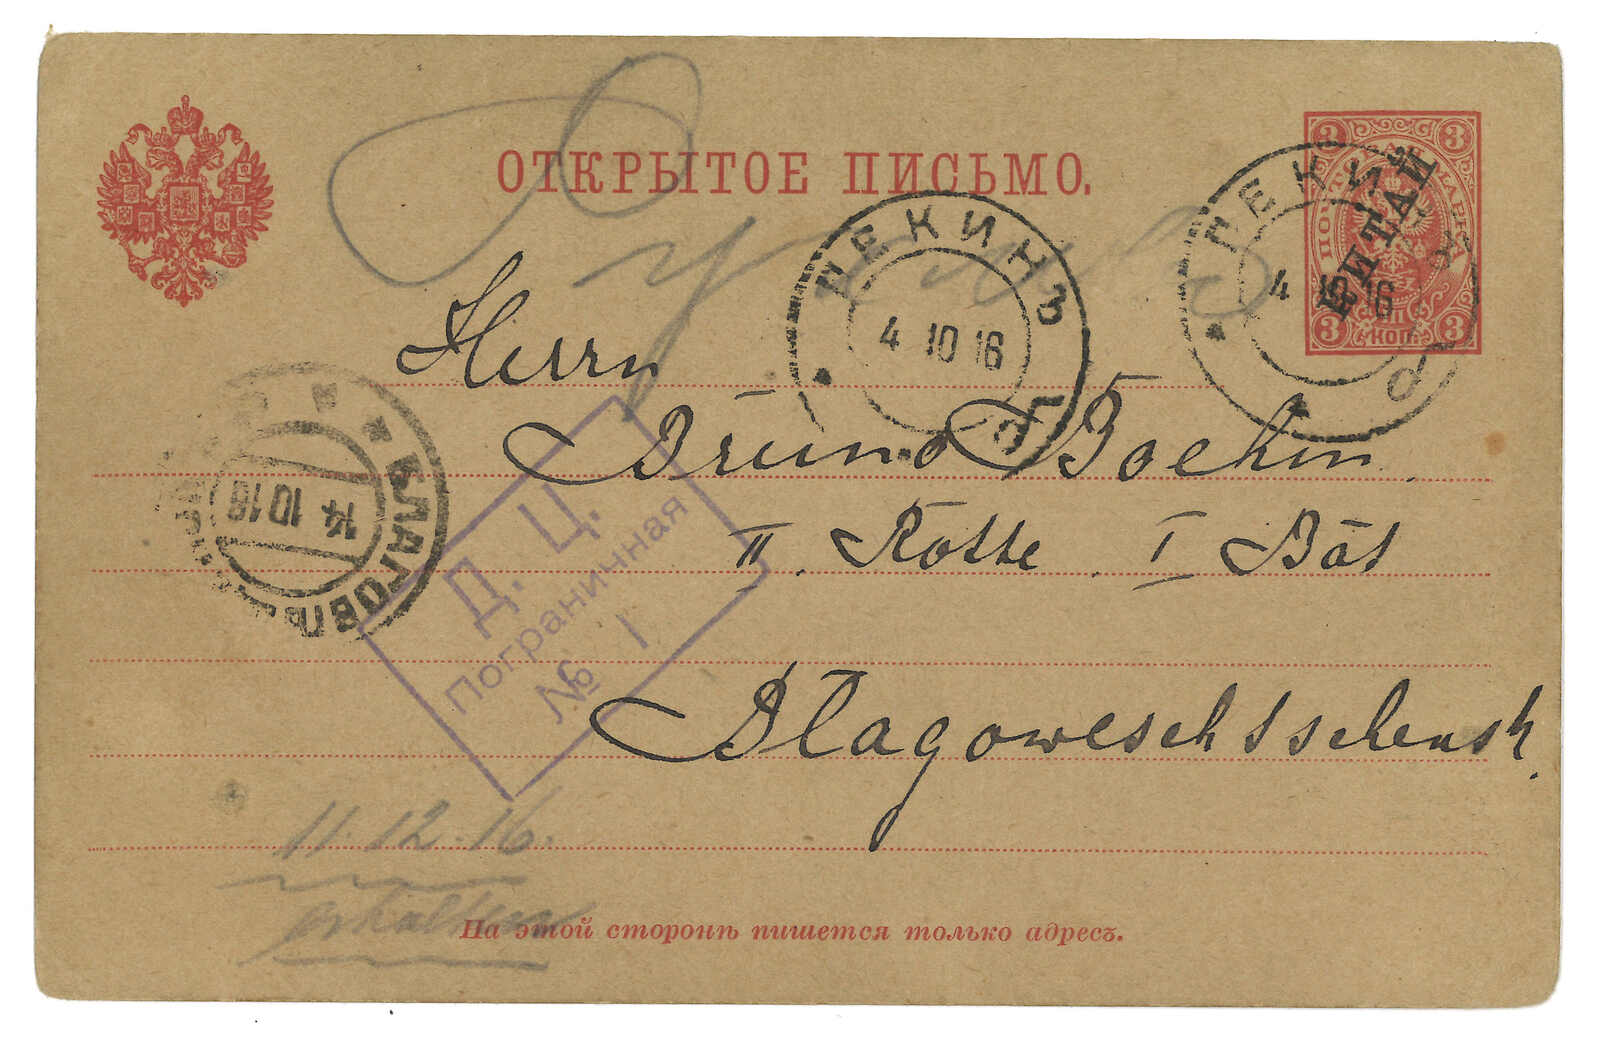 ОТКРЫТОЕ ПИСЬМО.
3 3
ПОЧТОВАЯ МАРКА
КИТАЙ
3 КОП. 3
ПЕКИНЪ
4 10 16
ПЕКИНЪ
4 10 16
Herrn
Bruno Boehm
II. Rotte. I Bat
Blagoweschtschensk.
БЛАГОВѢЩ
14 10 16
Д. Ц.
Пограничная
№ 1
11.12.16.
erhalten
На этой сторонѣ пишется только адресъ.